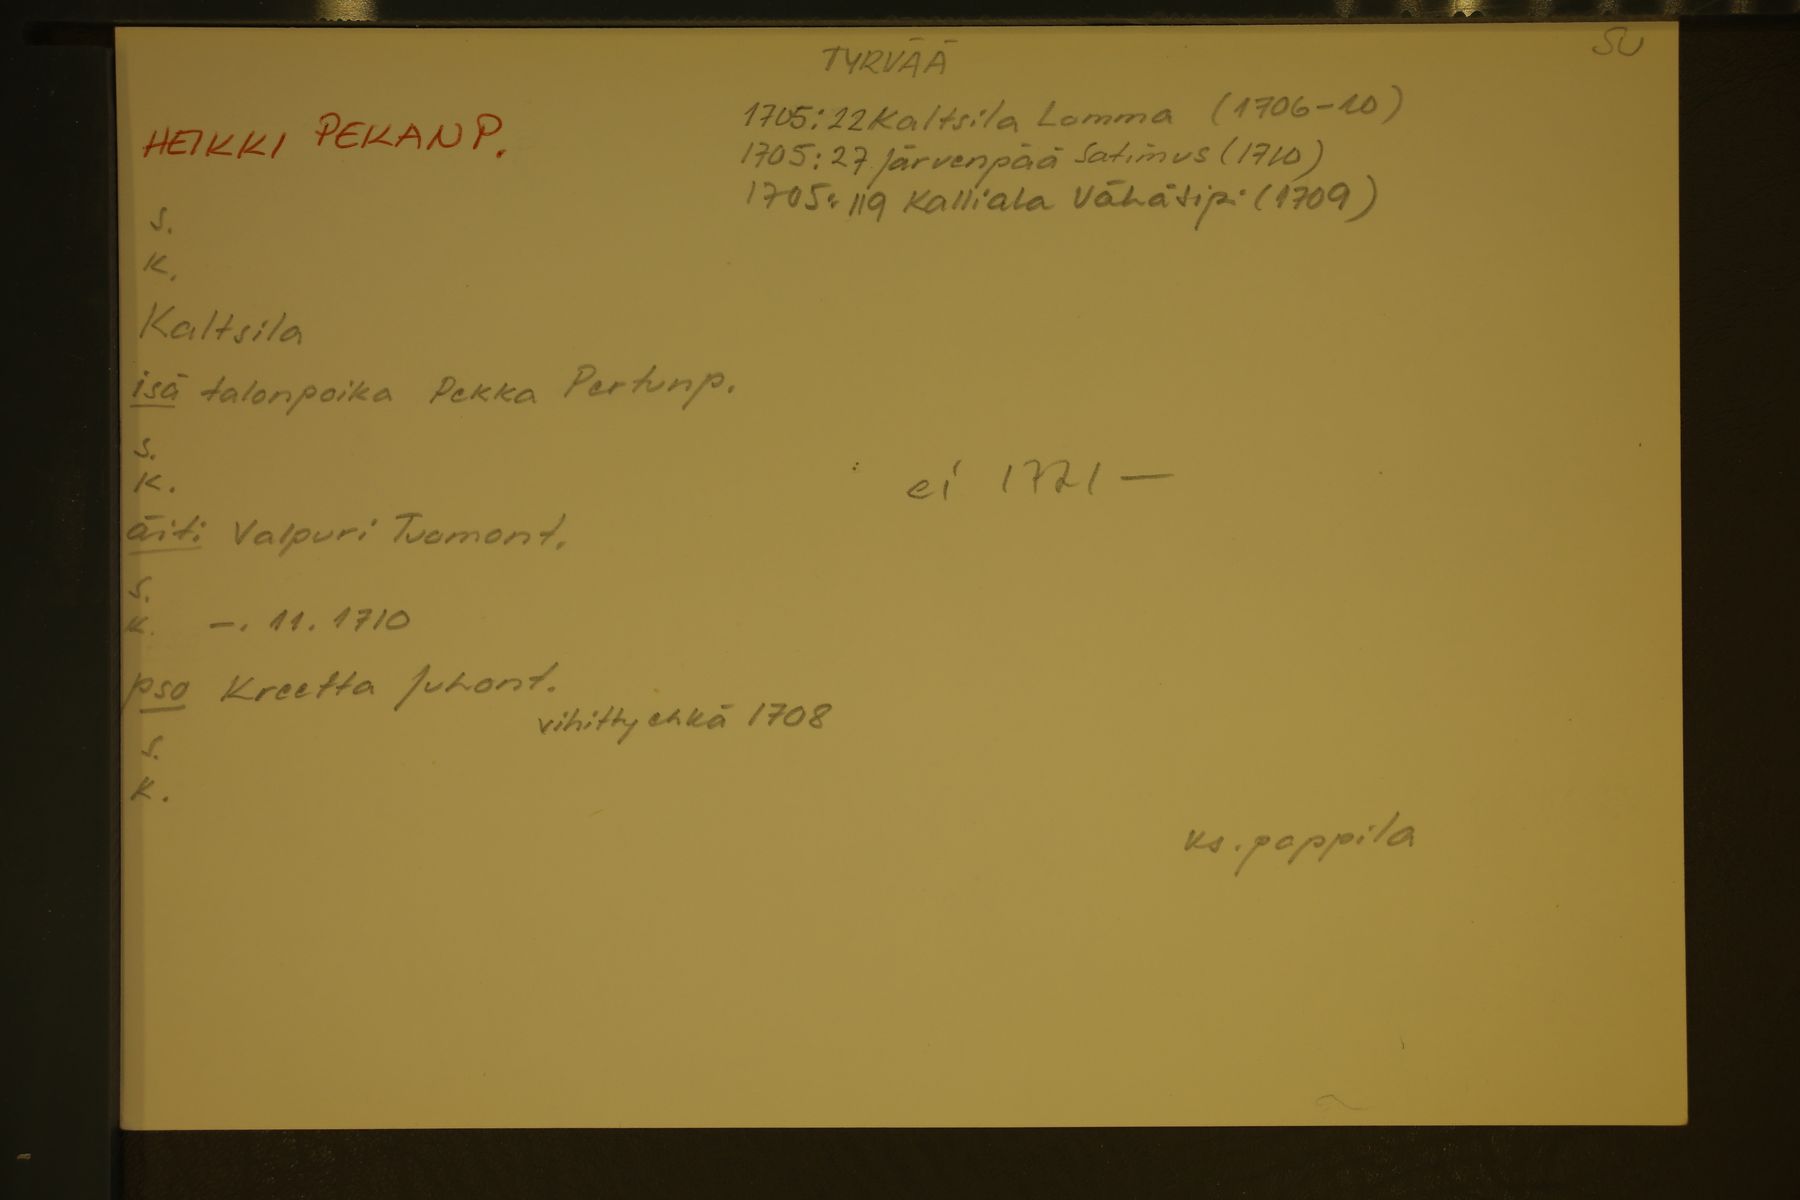 TYRVÄÄ
SU
HEIKKI PEKANP.
1705:22 Kaltsila Lamma (1706-10)
1705:27 Järvenpää Satimus (1710)
1705:119 Kalliala Vähäsipi (1709)
s.
k.
Kaltsila
isä talonpoika Pekka Pertunp.
s.
k.
ei 1721 —
äiti Valpuri Tuomont.
s.
k. —. 11. 1710
pso Kreetta Juhont.
vihitty ehkä 1708
s.
k.
ks. pappila